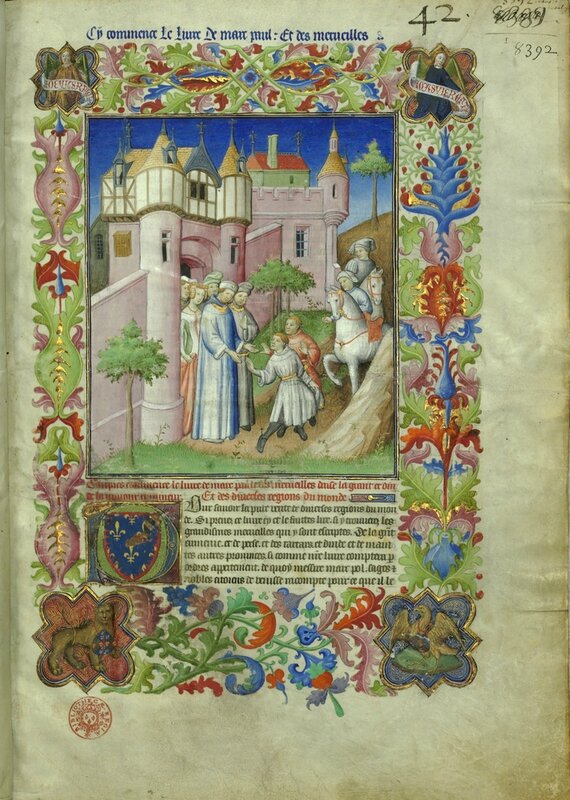 Cy commence Le Liure De marc paul : Et des merueilles
42.
8392
commence le liure de marc paul des merueilles daise la grant et din
de la maiour et mineur Et des diuerses regions du monde
Pour sauoir la pure verite de diuerses regions du mon
de. Si prenez ce liure cy et le faittes lire. si y trouuerez les
grandismes merueilles qui y sont escriptes. De la grāt
armenie. et de perse. et des tartars. et dinde. et de main
tes autres prouinces. si comme nre liure comptera par
ordre appertement. de quoy messire marc pol. sages et
nobles citoiens de venisse racompte pour ce que il le